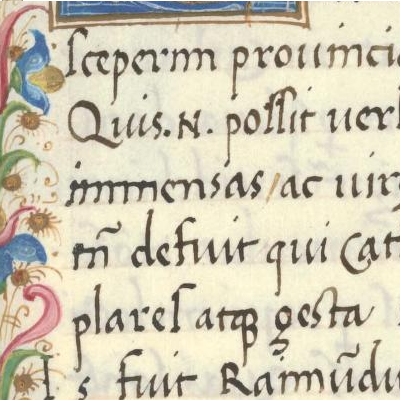 sceperim prouincia
Quis .N. possit uerb
immensas / ac uirg
tñ defuit qui Cat
plares atqȝ gesta
s fuit Raimũdu